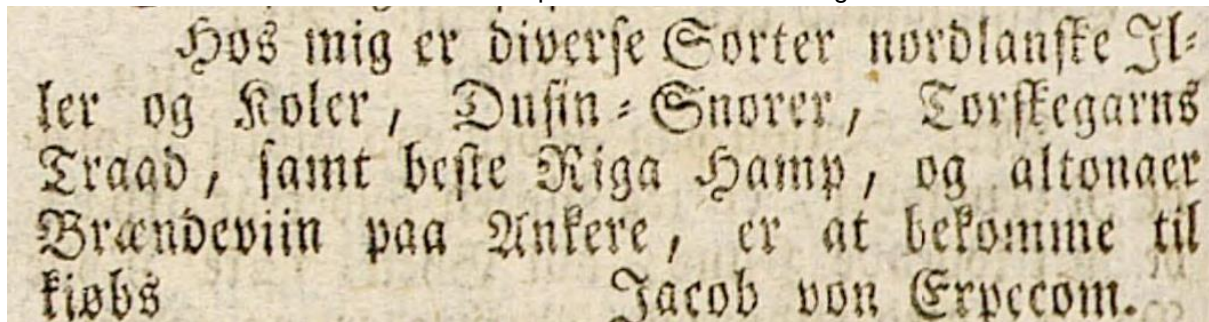 Hos mig er diverse Sorter nordlanske Il-
ler og Koler, Dusin-Snorer, Torskegarns
Traad, samt beste Riga Hamp, og altonaer
Brændeviin paa Ankere, er at bekomme til
kiøbs Jacob von Erpecom.